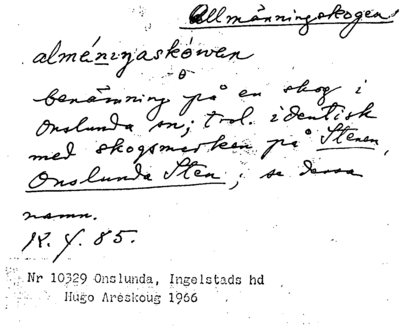 Allmänningskogen
alméni̱ŋaskówen
benämning på en skog i
Onslunda sn; trol. identisk
med skogsmarken på Stenen,
Onslunda Sten; se dessa
namn.
K. Y. 85.
Nr 10329 Onslunda, Ingelstads hd
Hugo Areskoug 1966